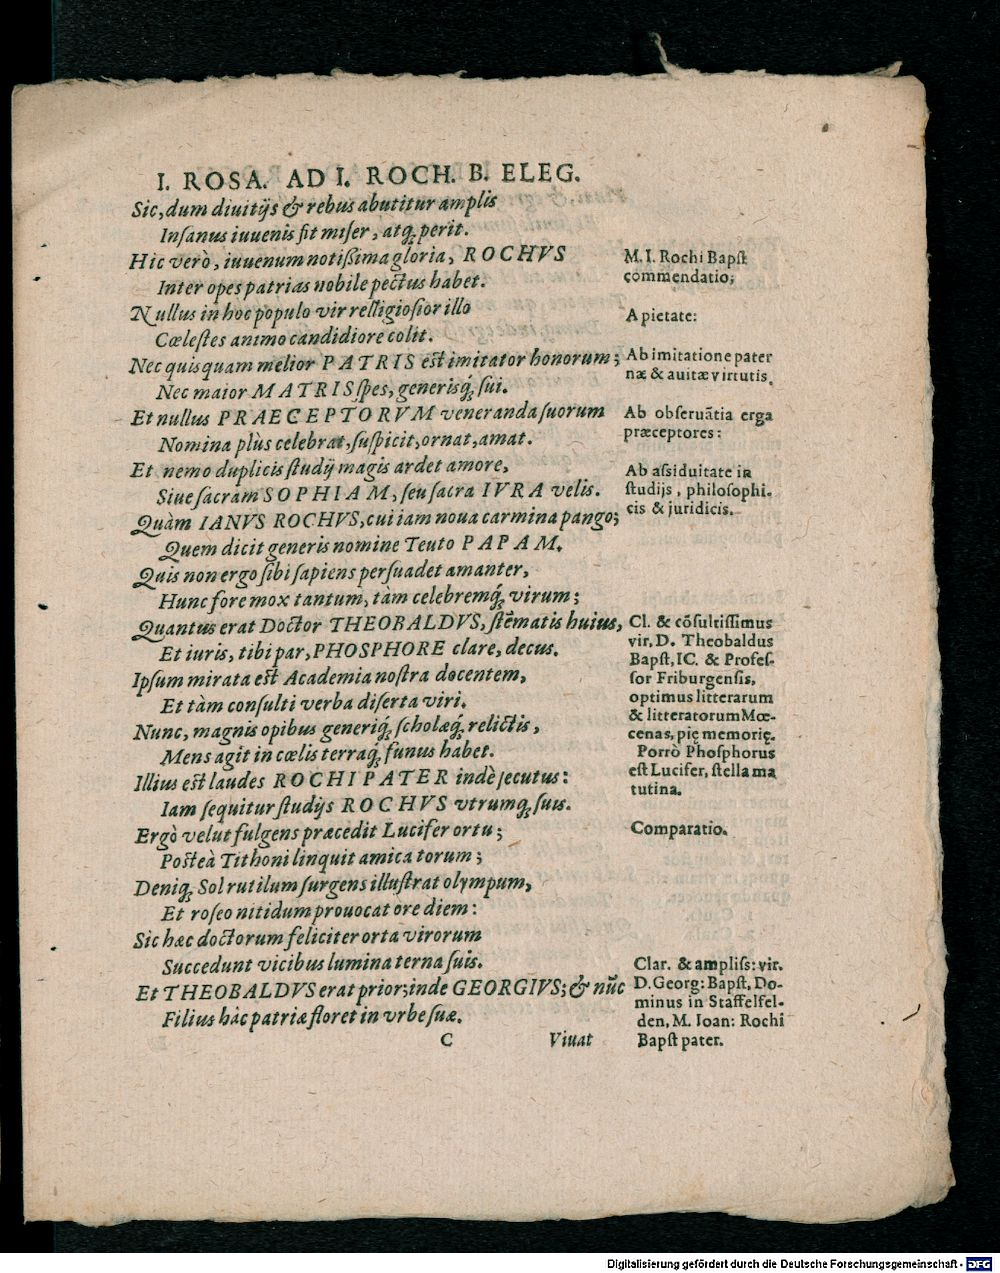 I. ROSA. AD I. ROCH. B. ELEG.
Sic, dum diuitijs & rebus abutitur amplis
Inſanus iuuenis fit miſer, atq́; perit.
Hic verò, iuuenum notißima gloria, ROCHVS
Inter opes patrias nobile pectus habet.
Nullus in hoc populo vir religioſior illo
Cœleſtes animo candidiore colit.
Nec quisquam melior PATRIS eſt imitator honorum;
Nec maior MATRIS ſpes, generisq́; ſui.
Et nullus PRAECEPTORVM veneranda ſuorum
Nomina plùs celebrat, ſuſpicit, ornat, amat.
Et nemo duplicis ſtudij magis ardet amore,
Siue ſacram SOPHIAM, ſeu ſacra IVRA velis.
Quàm IANVS ROCHVS, cui iam noua carmina pango;
Quem dicit generis nomine Teuto PAPAM.
Quis non ergo ſibi ſapiens perſuadet amanter,
Hunc fore mox tantum, tàm celebremq́; virum;
Quantus erat Doctor THEOBALDVS, ſtẽmatis huius,
Et iuris, tibi par, PHOSPHORE clare, decus.
Ipſum mirata eſt Academia noſtra docentem,
Et tàm conſulti verba diſerta viri.
Nunc, magnis opibus generiq́; ſcholæq́; relictis,
Mens agit in cœlis terraq́; funus habet.
Illius eſt laudes ROCHI PATER indè ſecutus:
Iam ſequitur ſtudijs ROCHVS vtrumq́; ſuis.
Ergò velut fulgens præcedit Lucifer ortu;
Poſteà Tithoni linquit amica torum;
Deniq́; Sol rutilum ſurgens illuſtrat olympum,
Et roſeo nitidum prouocat ore diem:
Sic hæc doctorum feliciter orta virorum
Succedunt vicibus lumina terna ſuis.
Et THEOBALDVS erat prior; inde GEORGIVS; & nũc
Filius hâc patriæ floret in vrbe ſuæ.
C Viuat
M. I. Rochi Bapſt
commendatio;
A pietate:
Ab imitatione pater
næ & auitæ virtutis.
Ab obſeruãtia erga
præceptores:
Ab aſsiduitate in
ſtudijs, philoſophi-
cis & juridicis.
Cl. & cõſultiſſimus
vir, D. Theobaldus
Bapſt, IC. & Profeſ-
ſor Friburgenſis,
optimus litterarum
& litteratorum Mœ-
cenas, pię memorię.
Porrò Phoſphorus
eſt Lucifer, ſtella ma
tutina.
Comparatio.
Clar. & ampliſs: vir.
D. Georg: Bapſt, Do-
minus in Staffelfel-
den, M. Ioan: Rochi
Bapſt pater.
Digitalisierung gefördert durch die Deutsche Forschungsgemeinschaft - DFG